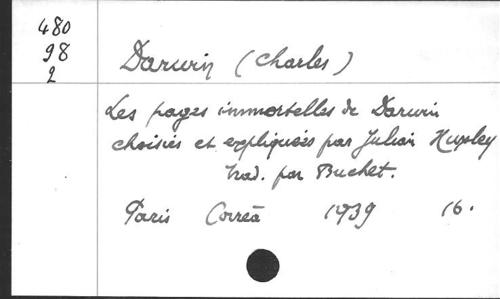 480
98
2
Darwin (Charles)
Les pages immortelles de Darwin
choisies et expliquées par Julian Huxley
trad. par Buchet.
Paris Corrêa 1939 16.